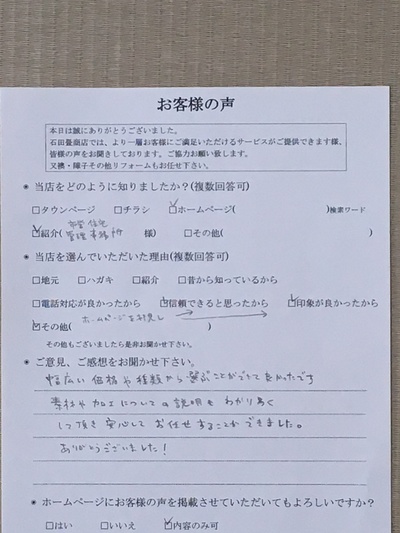 お客様の声
本日は誠にありがとうございました。
石田畳商店では、より一層お客様にご満足いただけるサービスがご提供できます様、
皆様の声をお聞きしております。ご協力お願い致します。
又襖・障子その他リフォームもお任せ下さい。
＊ 当店をどのように知りましたか？(複数回答可)
□タウンページ □チラシ ☑ホームページ( )検索ワード
☑紹介( 住宅管理事務所 様) □その他( )
＊ 当店を選んでいただいた理由(複数回答可)
□地元 □ハガキ □紹介 □昔から知っているから
□電話対応が良かったから ☑信頼できると思ったから ☑印象が良かったから
☑その他( ホームページを拝見し → → )
その他もございましたら是非お聞かせ下さい。
＊ ご意見、ご感想をお聞かせ下さい。
幅広い価格や種類から選ぶことができて良かったです
素材や加工についての説明もわかり易く
して頂き安心してお任せすることができました。
ありがとうございました！
＊ ホームページにお客様の声を掲載させていただいてもよろしいですか？
□はい □いいえ ☑内容のみ可